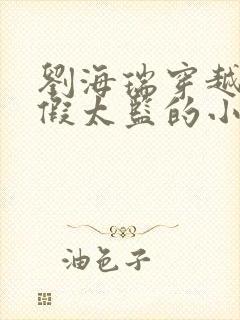 劉海瑞穿越
假太監的小
油色子